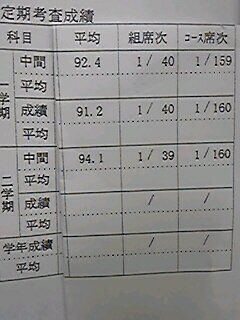 定期考査成績
科目 平均 組席次 コース席次
一学期 中間 92.4 1/ 40 1/159
平均
成績 91.2 1/ 40 1/160
平均
二学期 中間 94.1 1/ 39 1/160
平均
成績 / /
平均
学年成績 / /
平均